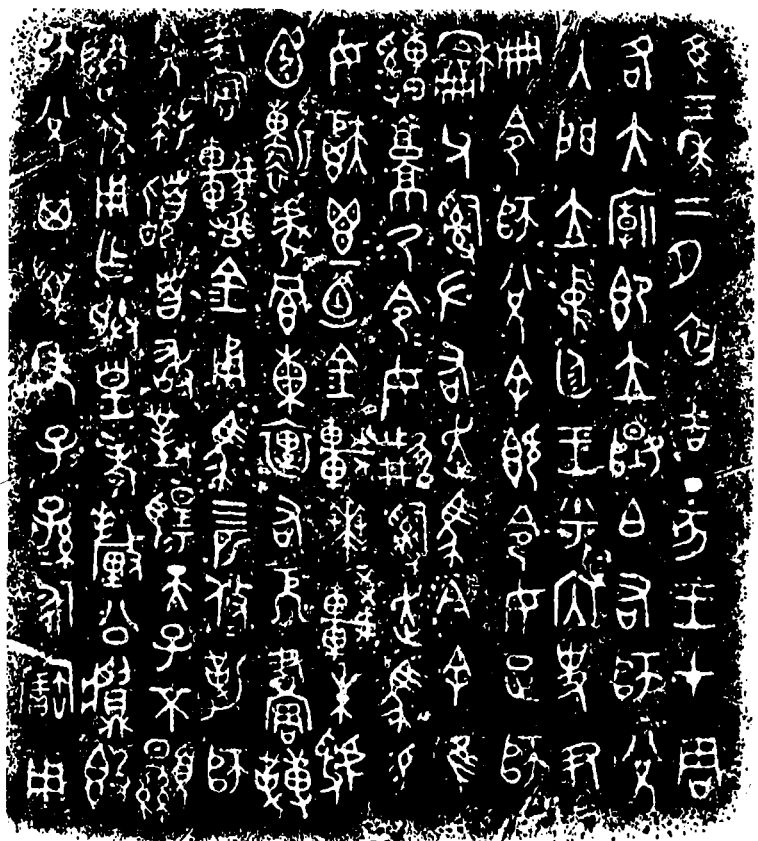 隹三年二月初吉丁亥王才周
各大廟即立𨽍白右師兌
入門立中廷王乎內史尹
冊令師兌余既令女疋師
龢父𤔲左右走馬今余隹
𤕌𩫏乃令女𩁹𤔲走馬易
女秬鬯一卣金車賁較朱虢
靳虎冟熏裏右厄畫
畫金甬馬四匹攸勒師
兌拜𩒨首敢對揚天子不顯
魯休用乍朕皇考釐公𪔂簋
師兌其萬年子子孫孫永寶用